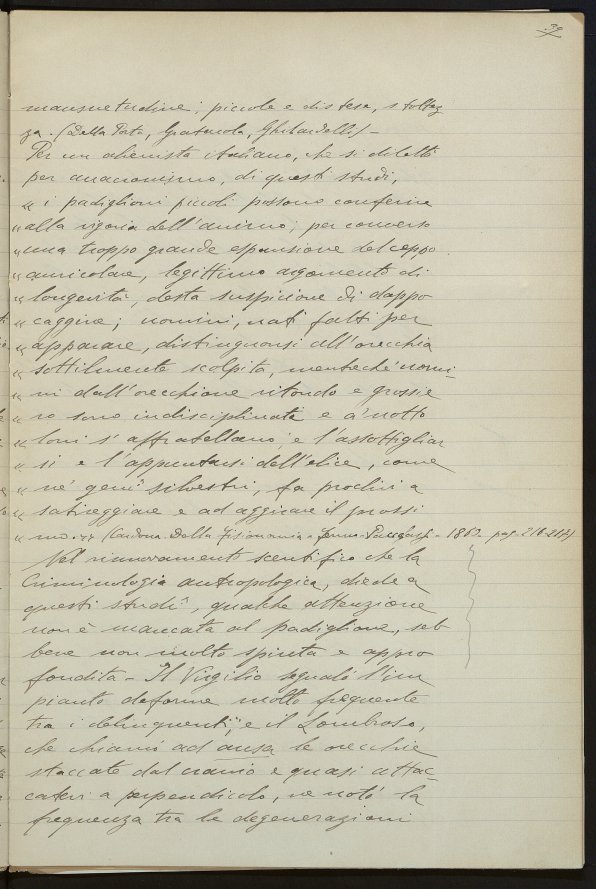 39
mansuetudine; piccole e distese, stoltez
za. (Della Porta, Gratarola, Ghirardelli) -
Per un alienista italiano, che si diletti
per anacronismo, di questi studi,
" i padiglioni piccoli possono conferire
" alla vigoria dell'animo; per converso
" una troppo grande espansione del ceppo
" auricolare, legittimo argomento di
" longevità, desta suspicione di dappo
" caggine; uomini, nati fatti per
" apparare, distinguonsi all'orecchia
" sottilmente scolpita, mentechè uomi-
" ni dall'orecchione ritondo e grossie
" ro sono indisciplinati e a'
" s'affratellano; e l'assottigliar
" si e l'appuntarsi dell'elice, come
" ne' genî silvestri, fa proclivi a
" satireggiare e ad aggirare il prossi
" mo. " (Cardona. Della Fisonomia - 1863. pag. 216-217)
Nel rinnovamento scentifico che la
Criminologia antropologica, diede a
questi studî, qualche attenzione
non è mancata al padiglione, seb
bene non molto spinta e appro
fondita - Il Virgilio segnalò l'im
pianto deforme molto frequente
tra i delinquenti, e il Lombroso,
che chiamò ad ansa le orecchie
staccate dal cranio e quasi attac-
catevi a perpendicolo, ne notò la
frequenza tra le degenerazioni